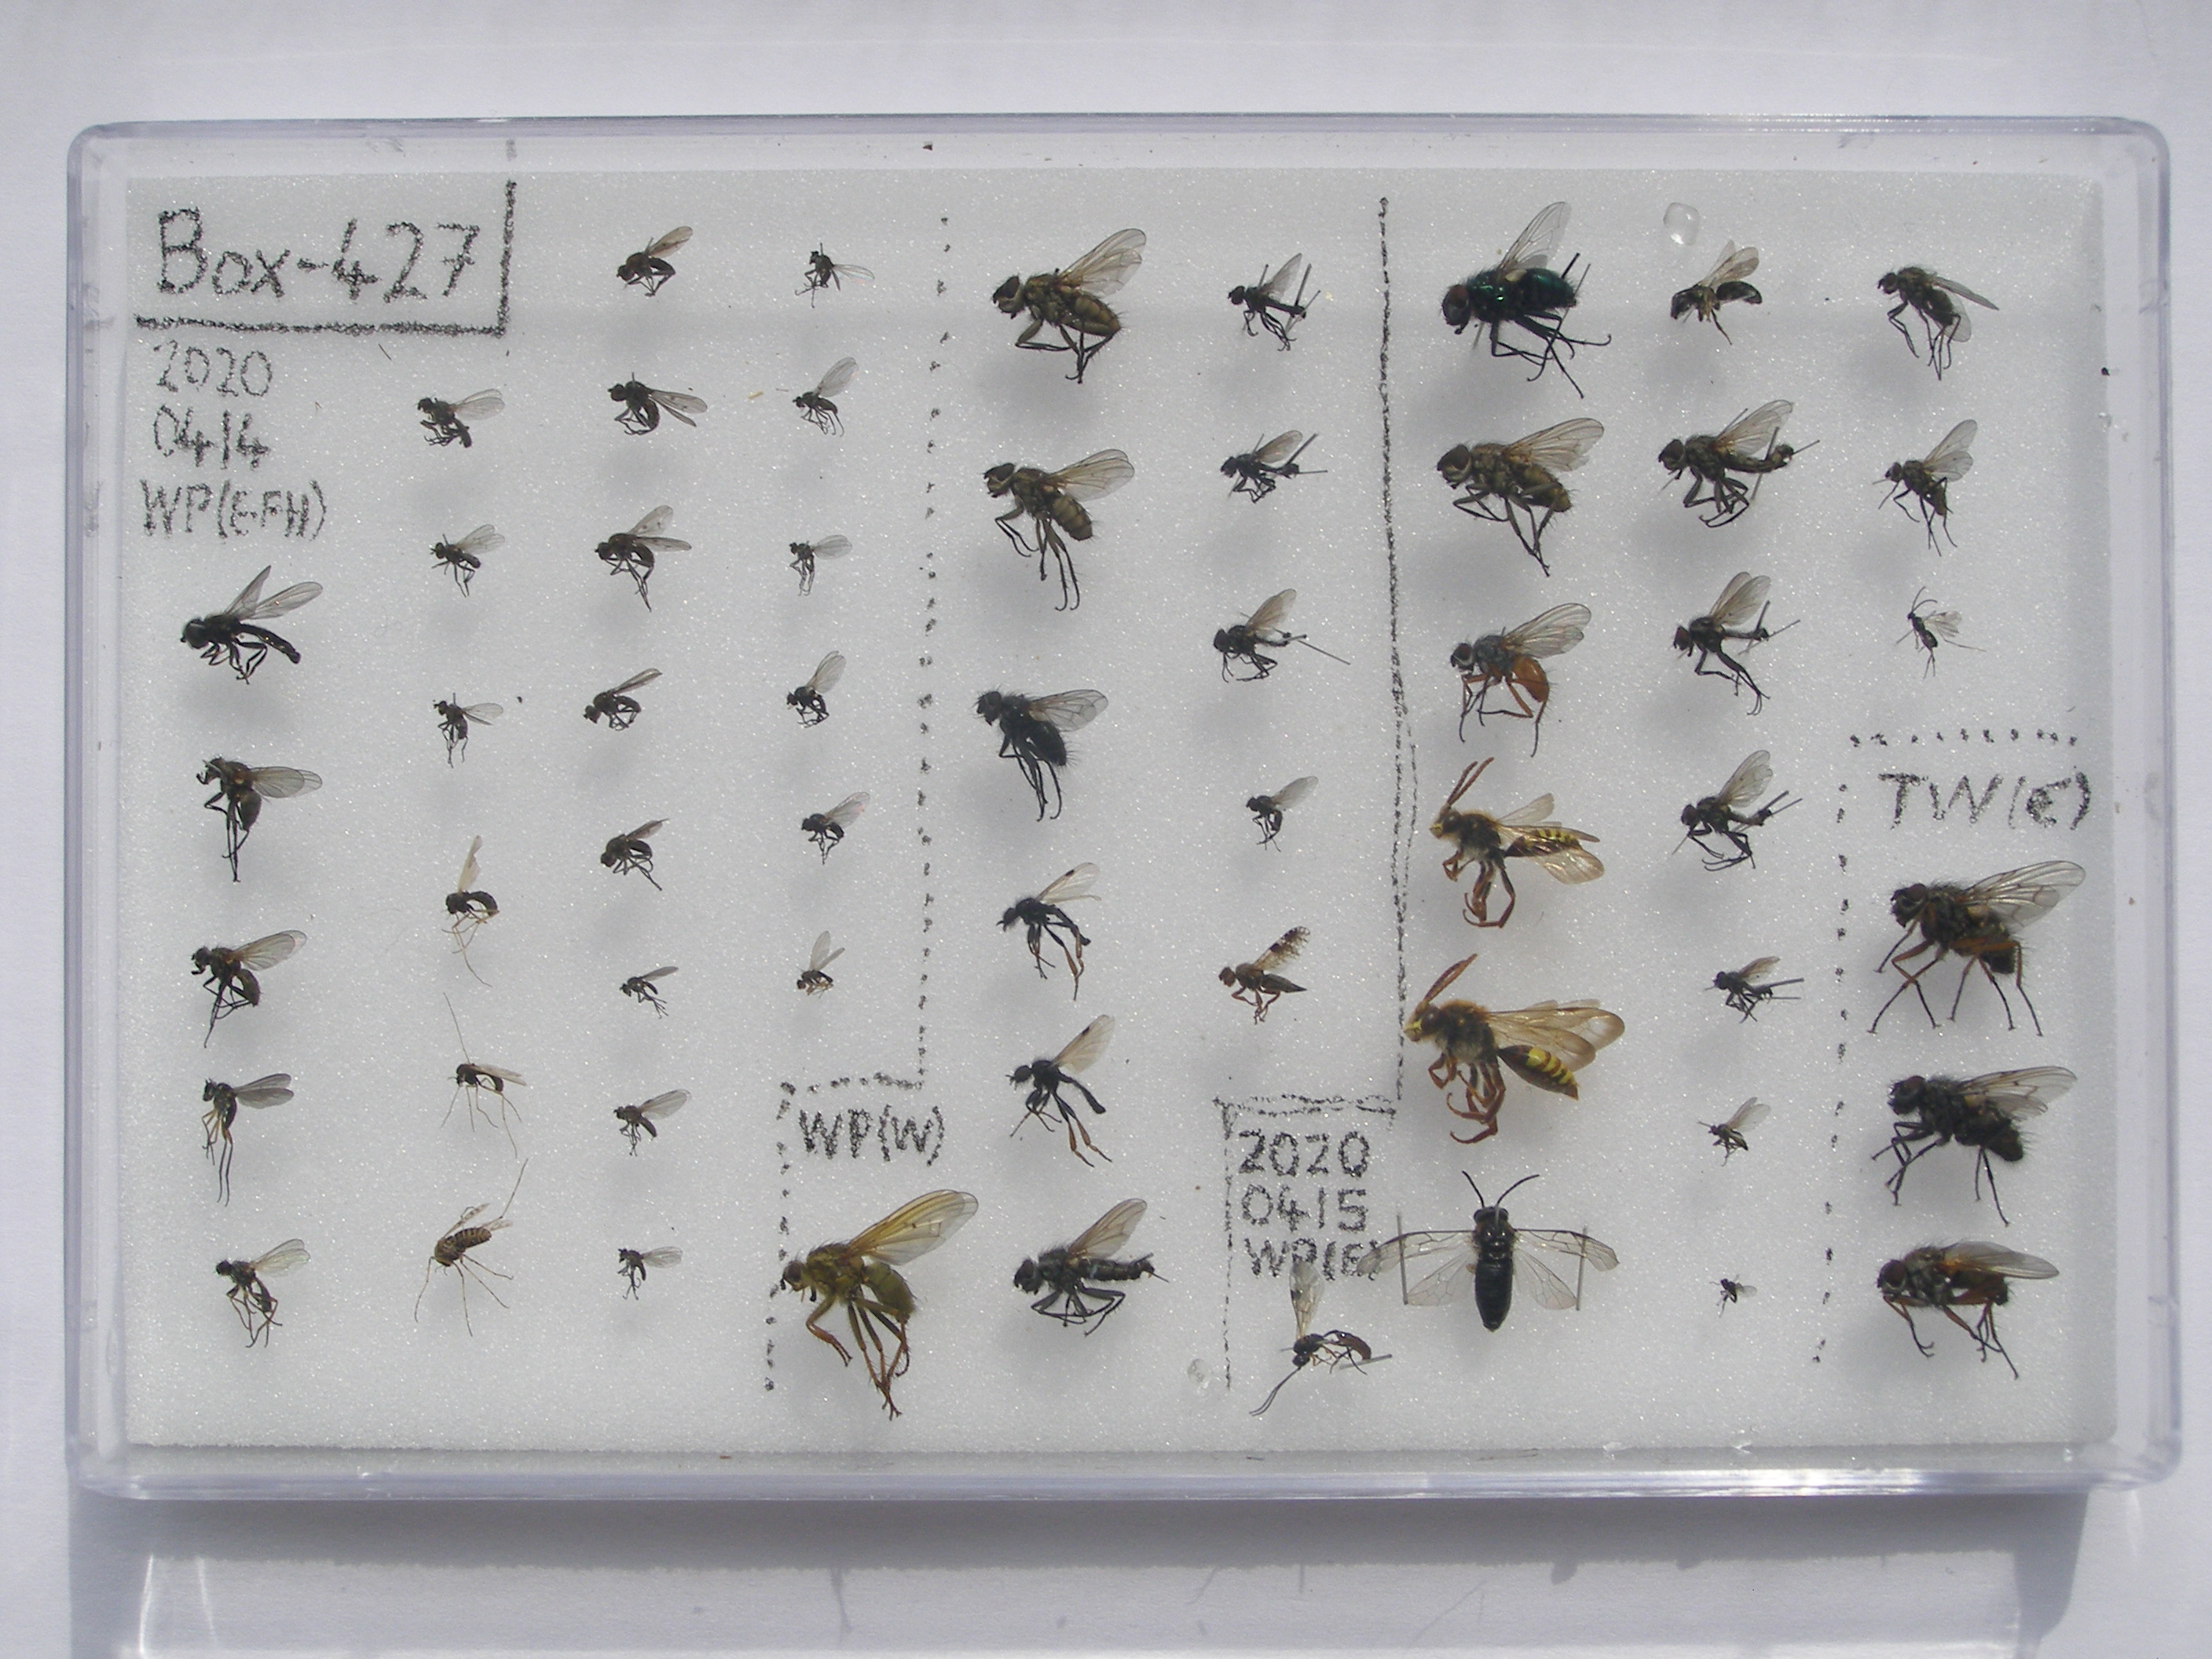 Box-427
2020
0414
WP(E-FH)
WP(W)
2020
0415
WP(E)
TW(E)